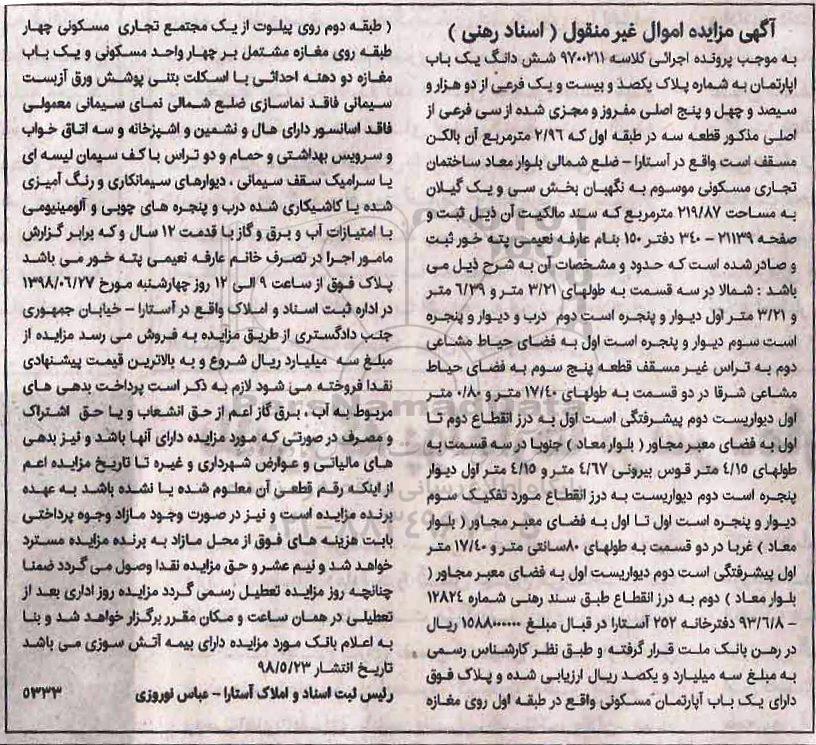 آگهی مزایده اموال غیر منقول ( اسناد رهنی )
به موجب پرونده اجرائی کلاسه ۹۷۰۰۲۱۱ شش دانگ یک باب
اپارتمان به شماره پلاک یکصد و بیست و یک فرعی از دو هزار و
سیصد و چهل و پنج اصلی مفروز و مجزی شده از سی فرعی از
اصلی مذکور قطعه سه در طبقه اول که ۲/۹۶ مترمربع آن بالکن
مسقف است واقع در آستارا - ضلع شمالی بلوار معاد ساختمان
تجاری مسکونی موسوم به نگهبان بخش سی و یک گیلان
به مساحت ۲۱۹/۸۷ مترمربع که سند مالکیت آن ذیل ثبت و
صفحه ۲۱۱۳۹ - ۳۴۰ دفتر ۱۵۰ بنام عارفه نعیمی پته خور ثبت
و صادر شده است که حدود و مشخصات آن به شرح ذیل می
باشد : شمالا در سه قسمت به طولهای ۳/۲۱ متر و ۶/۳۹ متر
و ۳/۲۱ متر اول دیوار و پنجره است دوم درب و دیوار و پنجره
است سوم دیوار و پنجره است اول به فضای حیاط مشاعی
دوم به تراس غیر مسقف قطعه پنج سوم به فضای حیاط
مشاعی شرقا در دو قسمت به طولهای ۱۷/۴۰ متر و ۰/۸۰ متر
اول دیواریست دوم پیشرفتگی است اول به درز انقطاع دوم تا
اول به فضای معبر مجاور ( بلوار معاد ) جنوبا در سه قسمت به
طولهای ۴/۱۵ متر قوس بیرونی ۴/۶۷ متر و ۴/۱۵ متر اول دیوار
پنجره است دوم دیواریست به درز انقطاع مورد تفکیک سوم
دیوار و پنجره است اول تا اول به فضای معبر مجاور ( بلوار
معاد ) غربا در دو قسمت به طولهای ۸۰سانتی متر و ۱۷/۴۰ متر
اول پیشرفتگی است دوم دیواریست اول به فضای معبر مجاور (
بلوار معاد ) دوم به درز انقطاع طبق سند رهنی شماره ۱۲۸۲۴
- ۹۳/۶/۸ دفترخانه ۲۵۲ آستارا در قبال مبلغ ۱۵۸۸۰۰۰۰۰۰ ریال
در رهن بانک ملت قرار گرفته و طبق نظر کارشناس رسمی
به مبلغ سه میلیارد و یکصد ریال ارزیابی شده و پلاک فوق
دارای یک باب آپارتمان مسکونی واقع در طبقه اول روی مغازه
( طبقه دوم روی پیلوت از یک مجتمع تجاری مسکونی چهار
طبقه روی مغازه مشتمل بر چهار واحد مسکونی و یک باب
مغازه دو دهنه احداثی با اسکلت بتنی پوشش ورق آزبست
سیمانی فاقد نماسازی ضلع شمالی نمای سیمانی معمولی
فاقد اسانسور دارای هال و نشمین و اشپزخانه و سه اتاق خواب
و سرویس بهداشتی و حمام و دو تراس با کف سیمان لیسه ای
یا سرامیک سقف سیمانی ، دیوارهای سیمانکاری و رنگ آمیزی
شده یا کاشیکاری شده درب و پنجره های چوبی و آلومینیومی
با امتیازات آب و برق و گاز با قدمت ۱۲ سال و که برابر گزارش
مامور اجرا در تصرف خانم عارفه نعیمی پته خور می باشد
پلاک فوق از ساعت ۹ الی ۱۲ روز چهارشنبه مورخ ۱۳۹۸/۰۶/۲۷
در اداره ثبت اسناد و املاک واقع در آستارا - خیابان جمهوری
جنب دادگستری از طریق مزایده به فروش می رسد مزایده از
مبلغ سه میلیارد ریال شروع و به بالاترین قیمت پیشنهادی
نقدا فروخته می شود لازم به ذکر است پرداخت بدهی های
مربوط به آب ، برق گاز اعم از حق انشعاب و یا حق اشتراک
و مصرف در صورتی که مورد مزایده دارای آنها باشد و نیز بدهی
های مالیاتی و عوارض شهرداری و غیره تا تاریخ مزایده اعم
از اینکه رقم قطعی آن معلوم شده یا نشده باشد به عهده
برنده مزایده است و نیز در صورت وجود مازاد وجوه پرداختی
بابت هزینه های فوق از محل مازاد به برنده مزایده مسترد
خواهد شد و نیم عشر و حق مزایده نقدا وصول می گردد ضمنا
چنانچه روز مزایده تعطیل رسمی گردد مزایده روز اداری بعد از
تعطیلی در همان ساعت و مکان مقرر برگزار خواهد شد و بنا
به اعلام بانک مورد مزایده دارای بیمه آتش سوزی می باشد
تاریخ انتشار ۹۸/۵/۲۳
رئیس ثبت اسناد و املاک آستارا - عباس نوروزی ۵۳۳۳